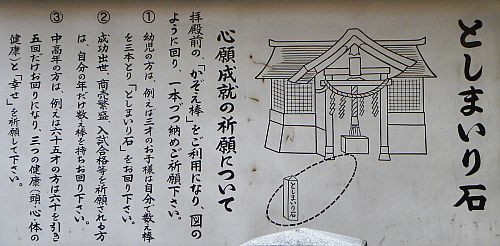 としまいり石
としまいり石
心願成就の祈願について
拝殿前の、「かぞえ棒」をご利用になり、図の
ように回り、一本づつ納めご祈願下さい。
① 幼児の方は、例えば三才のお子様は自分で数え棒
を三本とり「としまいり石」をお回り下さい。
② 成功出世、商売繁盛、入試合格等を祈願される方
は、自分の年だけ数え棒を持ちお回り下さい。
③ 中高年の方は、例えば六十五才の方は六十を引き
五回だけお回りになり、三つの健康(頭・心・体の
健康)と「幸せ」を祈願して下さい。